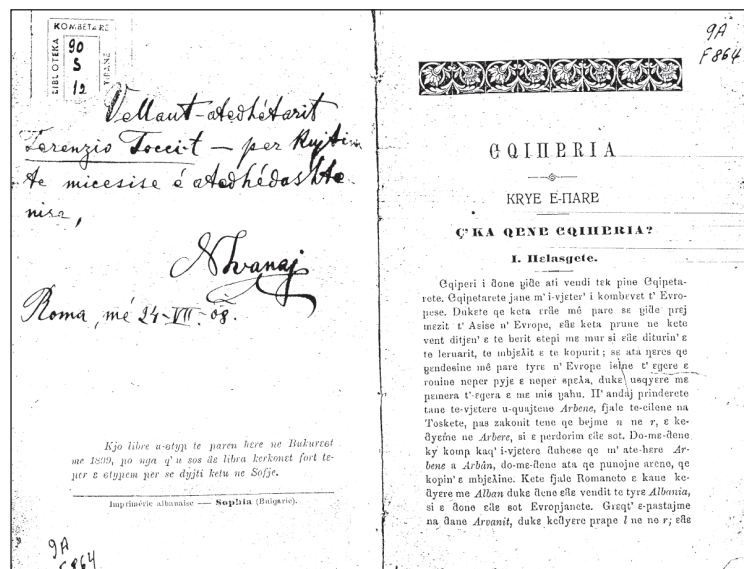 BIBLOTEKA
KOMBETARE
TIRANË
90
S
12
Vellaut-atedhétarit
Terenzio Toccit — per Kujtim
te micesise é atedhédashtë
nisë,
NIvanaj
Roma, më 24-VII-08.
Kjo libre u-etyp te paren here ne Bukurest
me 1899, po nga q' u sos ɛ̈ libra kerkonet fort te-
per ɛ etypem per se dyjti ketu ne Sofje.
Imprimérie albanaise — Sophia (Bulgarie).
9A
F864
9A
F864
CQIΠERIA
KRYE E-ΠARE
Ç'KA QENE CQIΠERIA?
I. Πɛlasgete.
Cqiperi i ϑone giϑe ati vendi tɛk pine Cqipeta-
rete. Cqipetarete jane m' i-vjeter' i kombevet t' Evro-
pese. Dukete qe keta erϑe mê pare sɛ giϑe prej
mezit t' Asise n' Evrope, eϑe keta prune ne kete
vent ditjen' ɛ te berit ɛtepi me mur si eϑe diturin' ɛ
te leruarit, te mbjeλit ɛ te kopurit; sɛ ata ɳeres qe
gendesine mê pare tyre n' Evrope iɛine t' egere ɛ
ronine neper pyje ɛ neper ɛpeλa, duke uɛqyere me
pemera t'-egera ɛ me miɛ gahu. Π' andaj prinderete
tane te-vjetere u-quajtene Arbene, fjale te-cilene na
Toskete, pas zakonit tene qe bejme n ne r, ɛ ke-
ϑyeime ne Arbere, si ɛ perdorim eϑe sot. Do-me-ϑene
ky komp kaq' i-vjetere ϑuhese qe m' ate-here Ar-
bene a Arbân, do-me-ϑene ata qe punojne arene, qe
kopin' ɛ mbjeλine. Kete fjale Romanete ɛ kane ke-
ϑyere me Alban duke ϑene eϑe vendit te tyre Albania,
si ɛ ϑone eϑe sot Evropjanete. Greqt' ɛ-pastajme
na ϑane Arvanit, duke keϑyere prape l ne ne r; eϑe